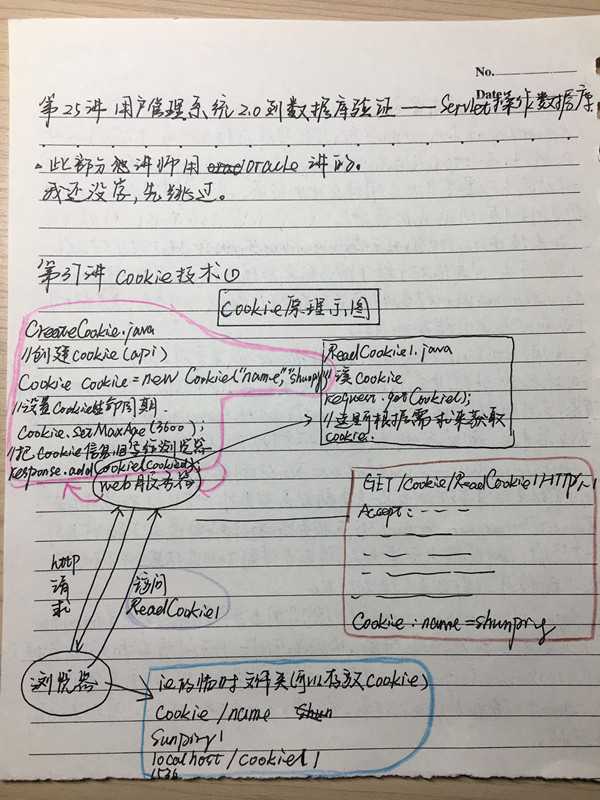 No.
Date
第25讲 用户管理系统2.0到数据库验证——Servlet操作数据库
此部分想讲师用oracle讲的。
我还没学,先跳过。
第37讲 Cookie技术①
Cookie原理示图
CreateCookie.java
//创建cookie(api)
Cookie cookie=new Cookie("name","shunping")
//设置Cookie生命周期
Cookie.setMaxAge(3600);
//把Cookie信息回写给浏览器
response.addCookie(cookie);
web服务器
ReadCookie1.java
//读Cookie
request.getCookie();
//这里根据需求来获取
cookie.
GET/Cookie/ReadCookie1/HTTP/1.1
Accept:---
Cookie:name=shunping
http
请
求
访问
ReadCookie1
浏览器
ie的临时文件夹(可以存放Cookie)
Cookie/name
Sunping1
localhost/cookie1
1536